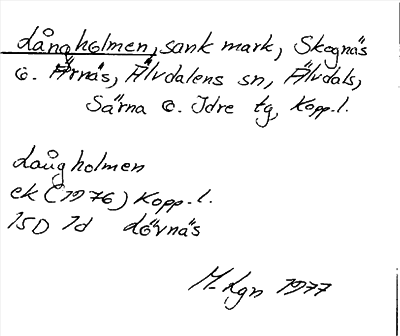 Långholmen, sank mark, Skognäs
o. Ärnäs, Älvdalens sn, Älvdals,
Särna o. Idre tg, Kopp. l.
Långholmen
ek (1976) Kopp. l.
15D 1d Lövnäs
1977